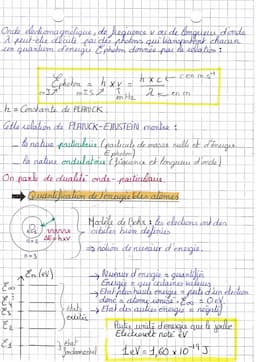 Onde électromagnétique, de fréquence ν ou de longueur d'onde
λ peut être décrite par des photons qui transportent chacun
un quantum d'énergie Ephoton donnée par la relation :
Ephoton = h x ν = h x c ← c en m.s⁻¹
λ ← en m
en J en J.S en Hz
h = Constante de PLANCK
Cette relation de PLANCK-EINSTEIN montre :
- la nature particulaire (particule de masse nulle et d'énergie
Ephoton)
- la nature ondulatoire (fréquence et longueur d'onde)
On parle de dualité onde-particulaire
→ Quantification de l'énergie des atomes
Modèle de Bohr : les électrons ont des
orbites bien définies
⇒ notion de niveaux d'énergie.
n=1
n=2
n=3
ΔE = hxν
En (eV)
→ Niveaux d'énergie = quantifiés
Énergie = que certaines valeurs
→ État plus haute énergie = perte d'un électron
donc = atome ionisé. E∞ = 0 eV
→ État des autres énergies = négatif
E∞
E2
E1
états
excités
état
fondamental
Autre unité d'énergie que le joule
Electronvolt noté eV
1 eV = 1,60 x 10⁻¹⁹ J